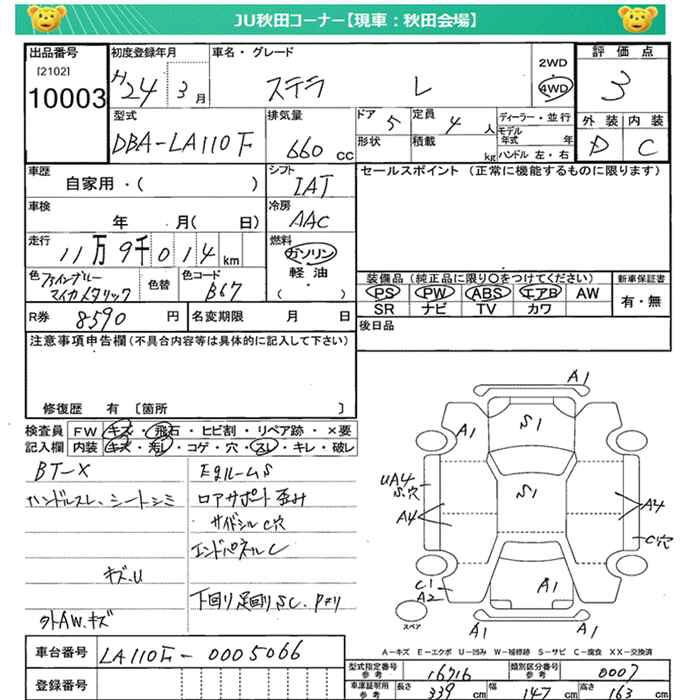 JU秋田コーナー【現車：秋田会場】
出品番号 [2102] 10003
初度登録年月 H24 3月
車名・グレード ステラ L
2WD 4WD
評価点 3
外装 内装 D C
型式 DBA-LA110F
排気量 660 cc
ドア 5 定員 4 人
形状 積載 kg
ディーラー・並行
モデル年式 年
ハンドル 左・右
車歴 自家用・( )
シフト IAT
セールスポイント (正常に機能するものに限ります)
車検 年 月( 日)
冷房 AAC
走行 11万9千014km
燃料 ガソリン 軽油 ( ・ )
色 ファインブルーマイカメタリック
色替
色コード B67
装備品 (純正品に限り○をつけてください)
PS PW ABS エアB AW
SR ナビ TV カワ
新車保証書 有・無
R券 8590 円
名変期限 月 日
後日品
注意事項申告欄(不具合内容等は具体的に記入して下さい)
修復歴 有 〔箇所 〕
検査員記入欄
FW キズ・飛石・ヒビ割・リペア跡・×要
内装 キズ・汚レ・コゲ・穴・スレ・キレ・破レ
BT-X
ハンドルスレ、シートシミ
キズ.U
外AW.キズ
Egルーム S
ロアサポート歪み
サイドシル C穴
エンドパネル C
下回り足回り S C.
A1
S1
A1
UA4
S.穴
S1
A4
A4
C穴
C1
A2
A1
A1
A1
スペア
A-キズ E-エクボ U-凹み W-補修跡 S-サビ C-腐食 XX-交換済
車台番号 LA110F-0005066
登録番号
型式指定番号 参考 16716
類別区分番号 参考 0007
車庫証明用 参考 長さ 339 cm 幅 147 cm 高さ 163 cm